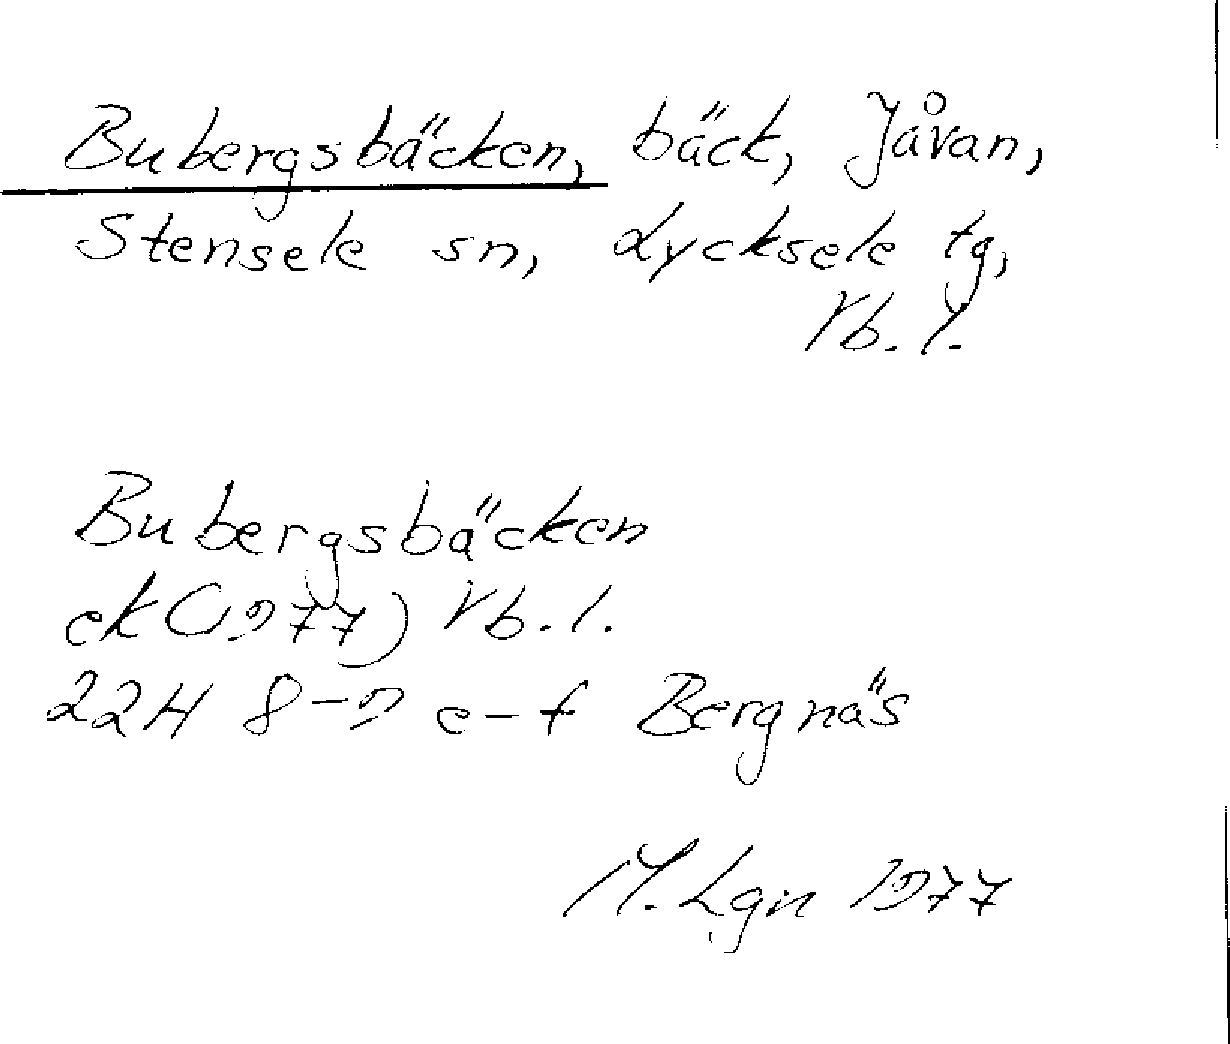 Bubergsbäcken, bäck, Jåvan,
Stensele sn, Lycksele tg,
Vb. l.
Bubergsbäcken
ek (1977) Vb. l.
22H 8-9 e-f Bergnäs
M. Lgn 1977